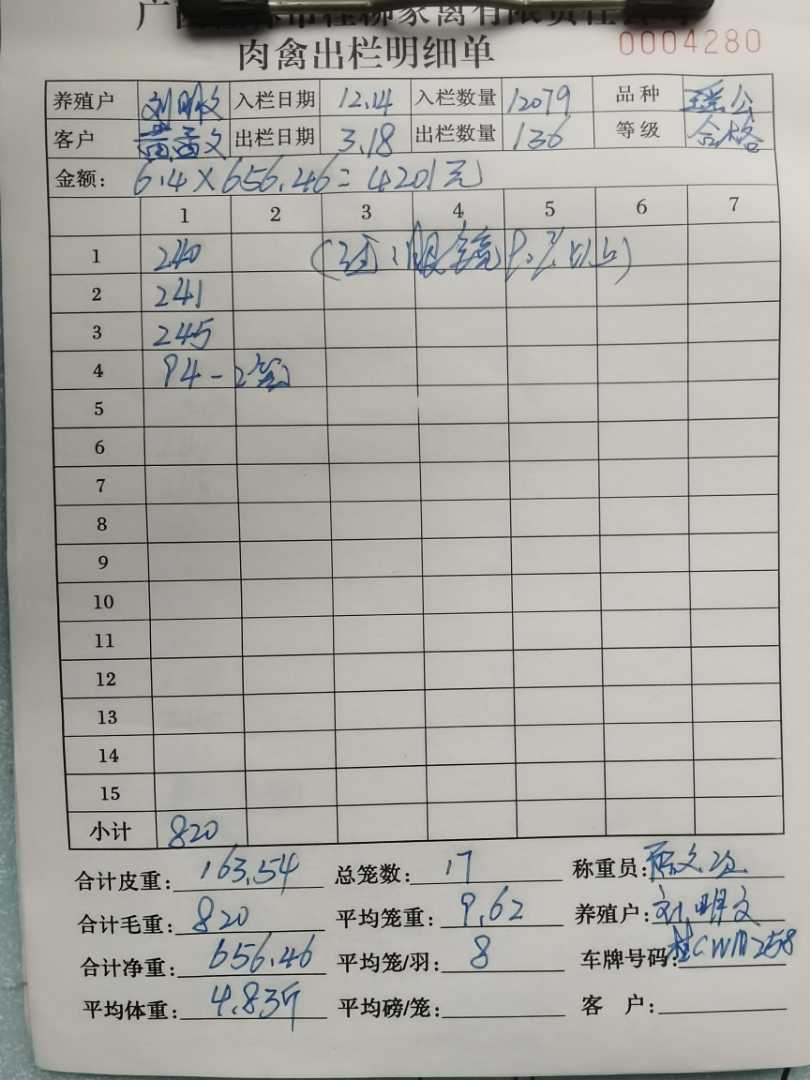 市桂柳家禽有限责任公司
肉禽出栏明细单 0004280
养殖户 刘明文 入栏日期 12.14 入栏数量 12079 品种 瑶公
客户 文 出栏日期 3.18 出栏数量 136 等级 合格
金额: 6.4×656.46=4201元
1 2 3 4 5 6 7
1 240 (眼镜90%以上)
2 241
3 245
4 94-2笼
5
6
7
8
9
10
11
12
13
14
15
小计 820
合计皮重: 163.54 总笼数: 17 称重员:
合计毛重: 820 平均笼重: 9.62 养殖户: 刘明文
合计净重: 656.46 平均笼/羽: 8 车牌号码: 桂CWM258
平均体重: 4.83斤 平均磅/笼: 客 户: